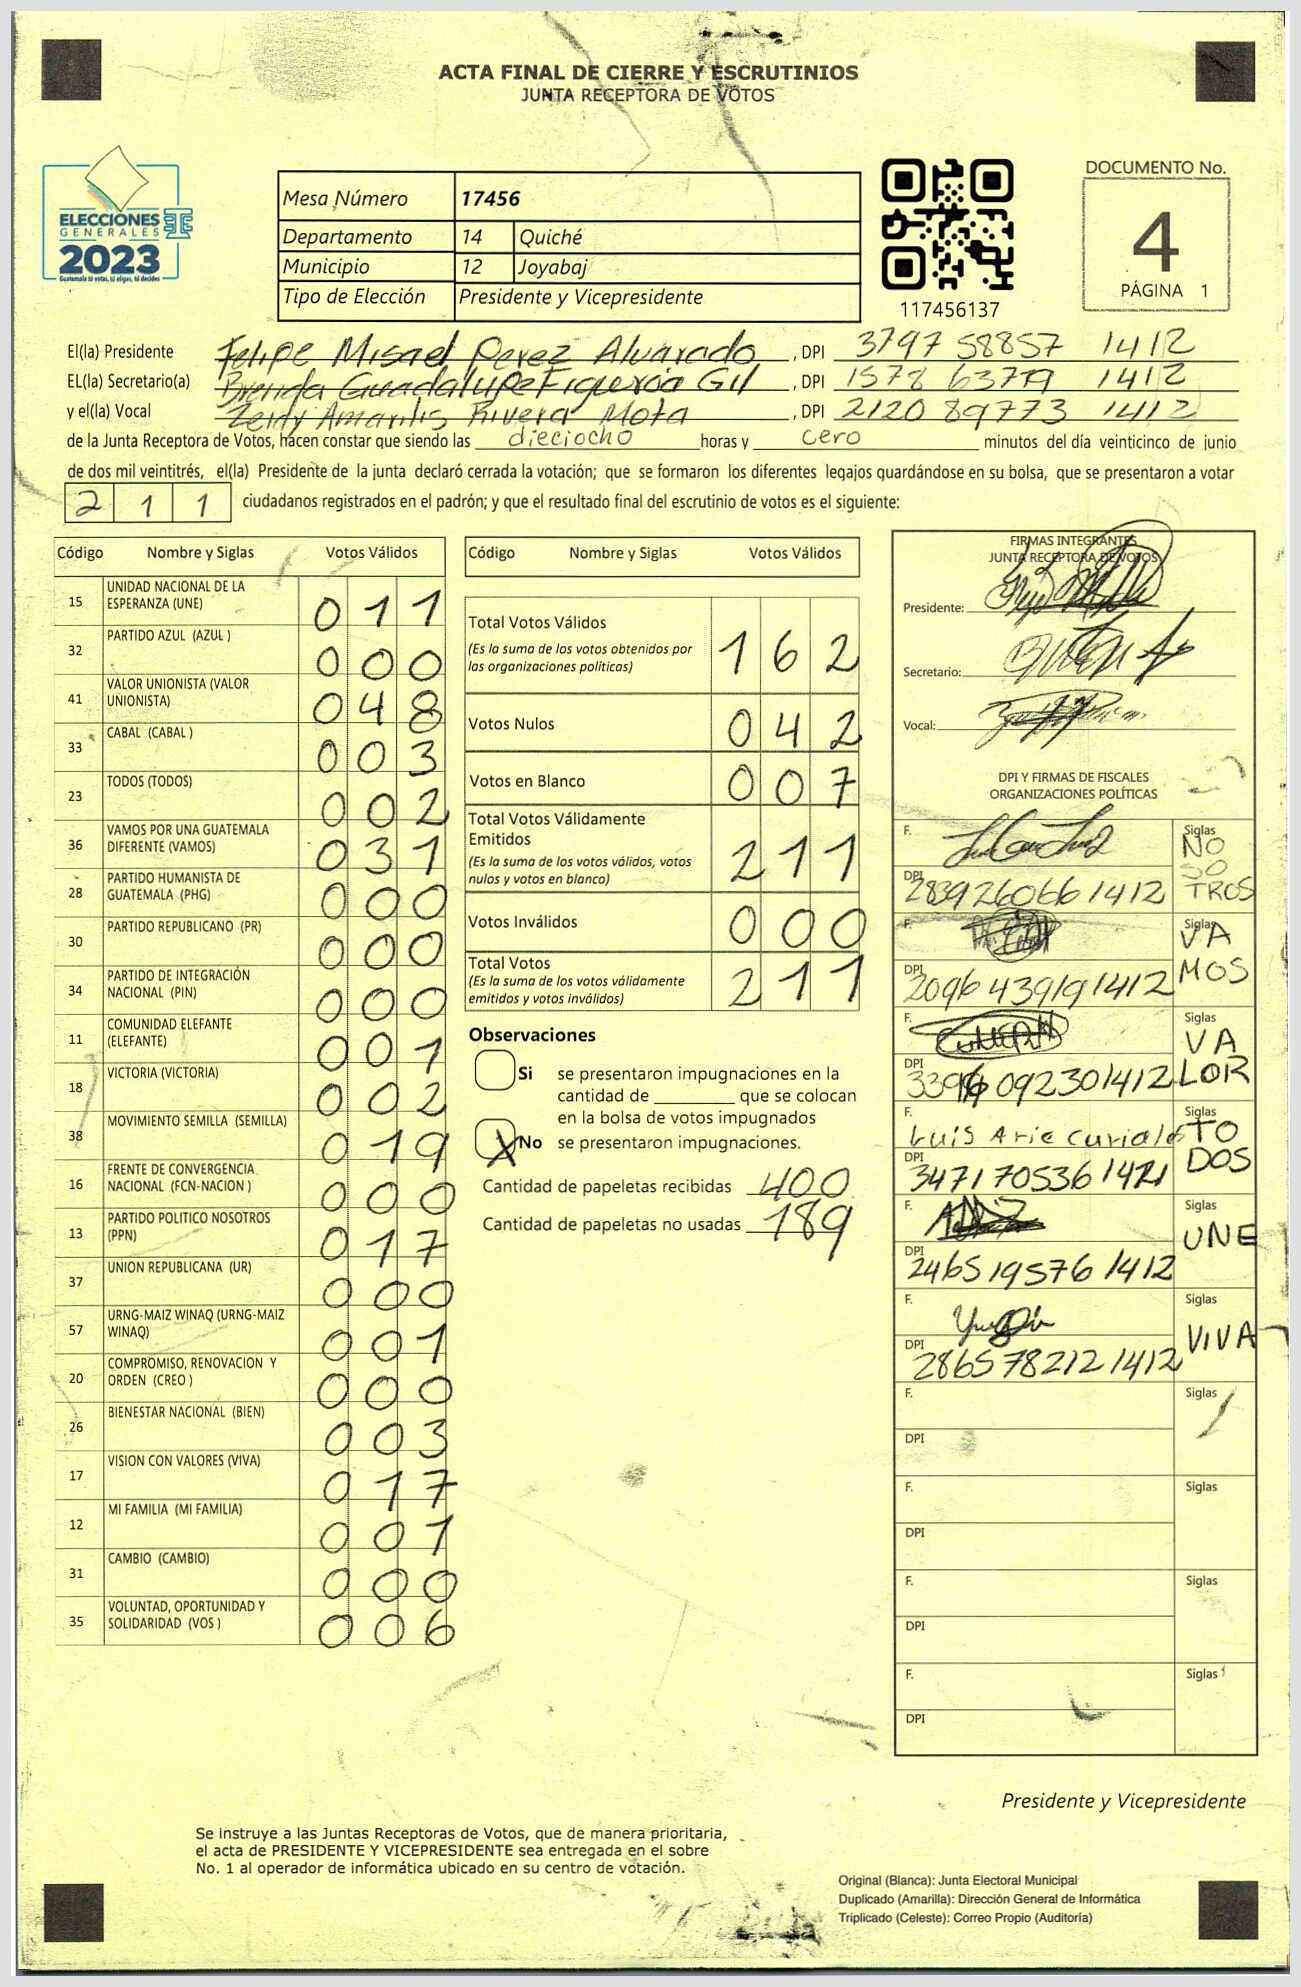 ACTA FINAL DE CIERRE Y ESCRUTINIOS
JUNTA RECEPTORA DE VOTOS
ELECCIONES
GENERALES
2023
Guatemala tú votas, tú eliges, tú decides
Mesa Número 17456
Departamento 14 Quiché
Municipio 12 Joyabaj
Tipo de Elección Presidente y Vicepresidente
117456137
DOCUMENTO No.
4
PÁGINA 1
El(la) Presidente Felipe Misael Perez Alvarado, DPI 3797 58857 1412
EL(la) Secretario(a) Brenda Guadalupe Figueroa Gil, DPI 1578 63779 1412
y el(la) Vocal Zeidy Amarilis Rivera Mota, DPI 2120 89773 1412
de la Junta Receptora de Votos, hacen constar que siendo las dieciocho horas y cero minutos del día veinticinco de junio
de dos mil veintitrés, el(la) Presidente de la junta declaró cerrada la votación; que se formaron los diferentes legajos guardándose en su bolsa, que se presentaron a votar
211 ciudadanos registrados en el padrón; y que el resultado final del escrutinio de votos es el siguiente:
Código Nombre y Siglas Votos Válidos
15 UNIDAD NACIONAL DE LA
ESPERANZA (UNE) 011
32 PARTIDO AZUL (AZUL ) 000
41 VALOR UNIONISTA (VALOR
UNIONISTA) 048
33 CABAL (CABAL ) 003
23 TODOS (TODOS) 002
36 VAMOS POR UNA GUATEMALA
DIFERENTE (VAMOS) 031
28 PARTIDO HUMANISTA DE
GUATEMALA (PHG) 000
30 PARTIDO REPUBLICANO (PR) 000
34 PARTIDO DE INTEGRACIÓN
NACIONAL (PIN) 000
11 COMUNIDAD ELEFANTE
(ELEFANTE) 001
18 VICTORIA (VICTORIA) 002
38 MOVIMIENTO SEMILLA (SEMILLA) 019
16 FRENTE DE CONVERGENCIA
NACIONAL (FCN-NACION ) 000
13 PARTIDO POLITICO NOSOTROS
(PPN) 017
37 UNION REPUBLICANA (UR) 000
57 URNG-MAIZ WINAQ (URNG-MAIZ
WINAQ) 001
20 COMPROMISO, RENOVACION Y
ORDEN (CREO ) 000
26 BIENESTAR NACIONAL (BIEN) 003
17 VISION CON VALORES (VIVA) 017
12 MI FAMILIA (MI FAMILIA) 001
31 CAMBIO (CAMBIO) 000
35 VOLUNTAD, OPORTUNIDAD Y
SOLIDARIDAD (VOS ) 006
Código Nombre y Siglas Votos Válidos
Total Votos Válidos
(Es la suma de los votos obtenidos por
las organizaciones políticas) 162
Votos Nulos 042
Votos en Blanco 007
Total Votos Válidamente
Emitidos
(Es la suma de los votos válidos, votos
nulos y votos en blanco) 211
Votos Inválidos 000
Total Votos
(Es la suma de los votos válidamente
emitidos y votos inválidos) 211
Observaciones
Si se presentaron impugnaciones en la
cantidad de ________ que se colocan
en la bolsa de votos impugnados
X No se presentaron impugnaciones.
Cantidad de papeletas recibidas 400
Cantidad de papeletas no usadas 189
FIRMAS INTEGRANTES
JUNTA RECEPTORA DE VOTOS
Presidente:
Secretario:
Vocal:
DPI Y FIRMAS DE FISCALES
ORGANIZACIONES POLÍTICAS
F. Siglas NO
SO
TROS
DPI 2839260661412
F. Siglas VA
MOS
DPI 2096439191412
F. Siglas VA
LOR
DPI 092301412
F. Luis Siglas TO
DOS
DPI 3471705361421
F. Siglas UNE
DPI 2465195761412
F. Siglas VIVA
DPI 2865782121412
F. Siglas
DPI
F. Siglas
DPI
F. Siglas
DPI
F. Siglas
DPI
Presidente y Vicepresidente
Se instruye a las Juntas Receptoras de Votos, que de manera prioritaria,
el acta de PRESIDENTE Y VICEPRESIDENTE sea entregada en el sobre
No. 1 al operador de informática ubicado en su centro de votación.
Original (Blanca): Junta Electoral Municipal
Duplicado (Amarilla): Dirección General de Informática
Triplicado (Celeste): Correo Propio (Auditoría)